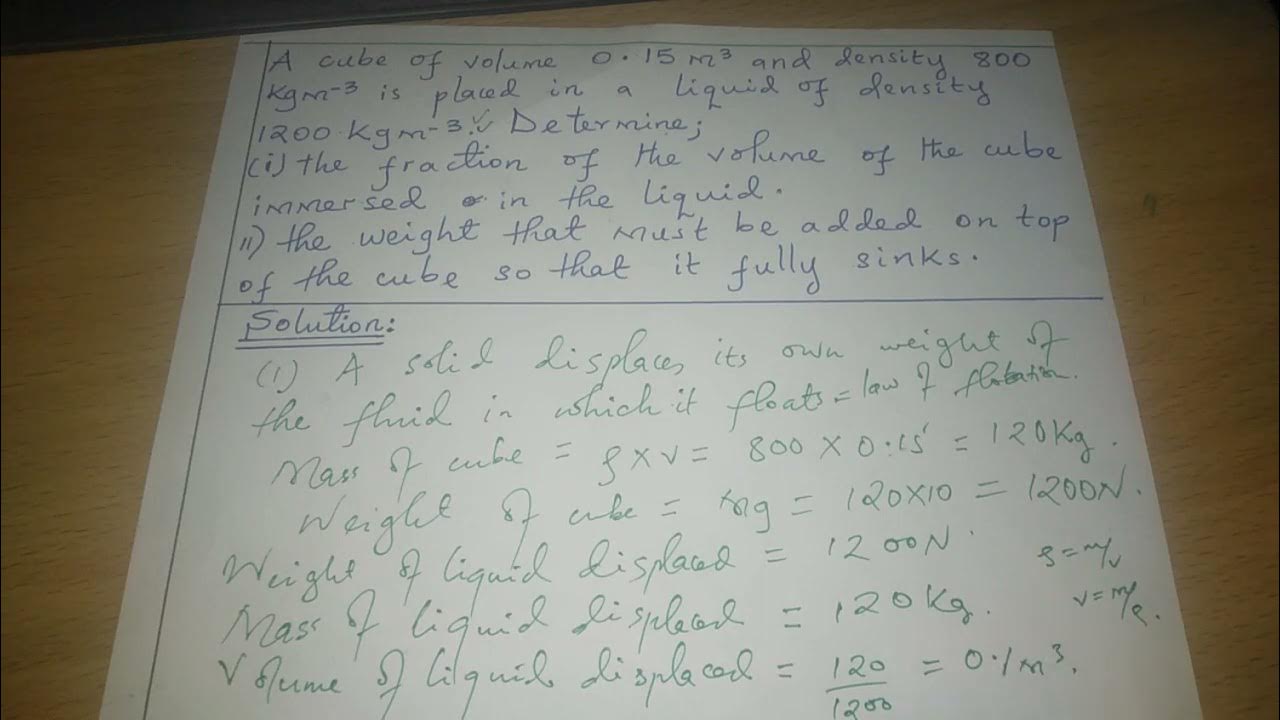 A cube of volume 0.15 m³ and density 800
Kgm⁻³ is placed in a liquid of density
1200 Kgm⁻³. Determine;
(i) the fraction of the volume of the cube
immersed in the liquid.
ii) the weight that must be added on top
of the cube so that it fully sinks.
Solution:
(1) A solid displaces its own weight of
the fluid in which it floats = law of flotation.
Mass of cube = ρ x v = 800 X 0.15 = 120Kg.
Weight of cube = mg = 120X10 = 1200N.
Weight of liquid displaced = 1200N.
ρ = m/v
Mass of liquid displaced = 120Kg.
v = m/ρ.
Volume of liquid displaced = 120/1200 = 0.1m³.